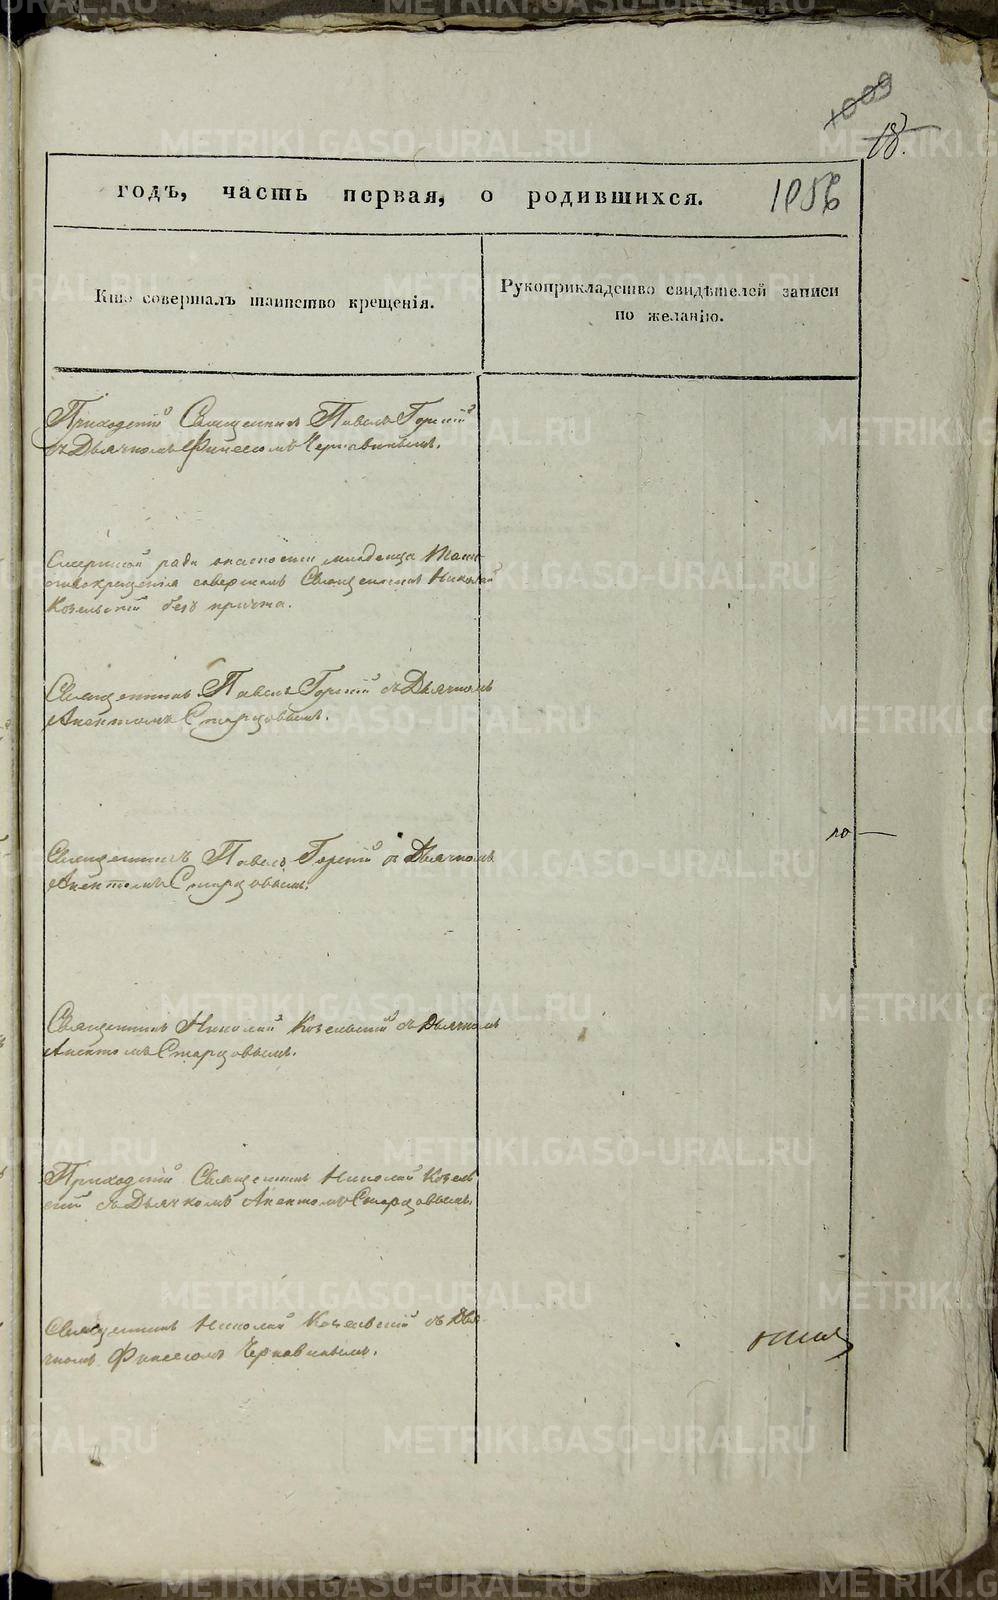 1009
18.
годъ, часть первая, о родившихся. 1056
Кто совершалъ таинство крещенія.
Рукоприкладство свидѣтелей записи
по желанію.
Приходскій Священникъ Павелъ Горскій
съ Дьячкомъ Финеесомъ Чернавинымъ.
Смертной ради опасности младенца Таин-
ство крещенія совершилъ Священникъ Николай
Козельскій безъ причта.
Священникъ Павелъ Горскій съ Дьячкомъ
Анектомъ Старцовымъ.
Священникъ Павелъ Горскій съ Дьячкомъ
Анектомъ Старцовымъ.
Священникъ Николай Козельскій съ Дьячкомъ
Анектомъ Старцовымъ.
Приходскій Священникъ Николай Козель
скій съ Дьячкомъ Анектомъ Старцовымъ.
Священникъ Николай Козельскій съ Дья-
чкомъ Финеесомъ Чернавинымъ.
METRIKI.GASO-URAL.RU